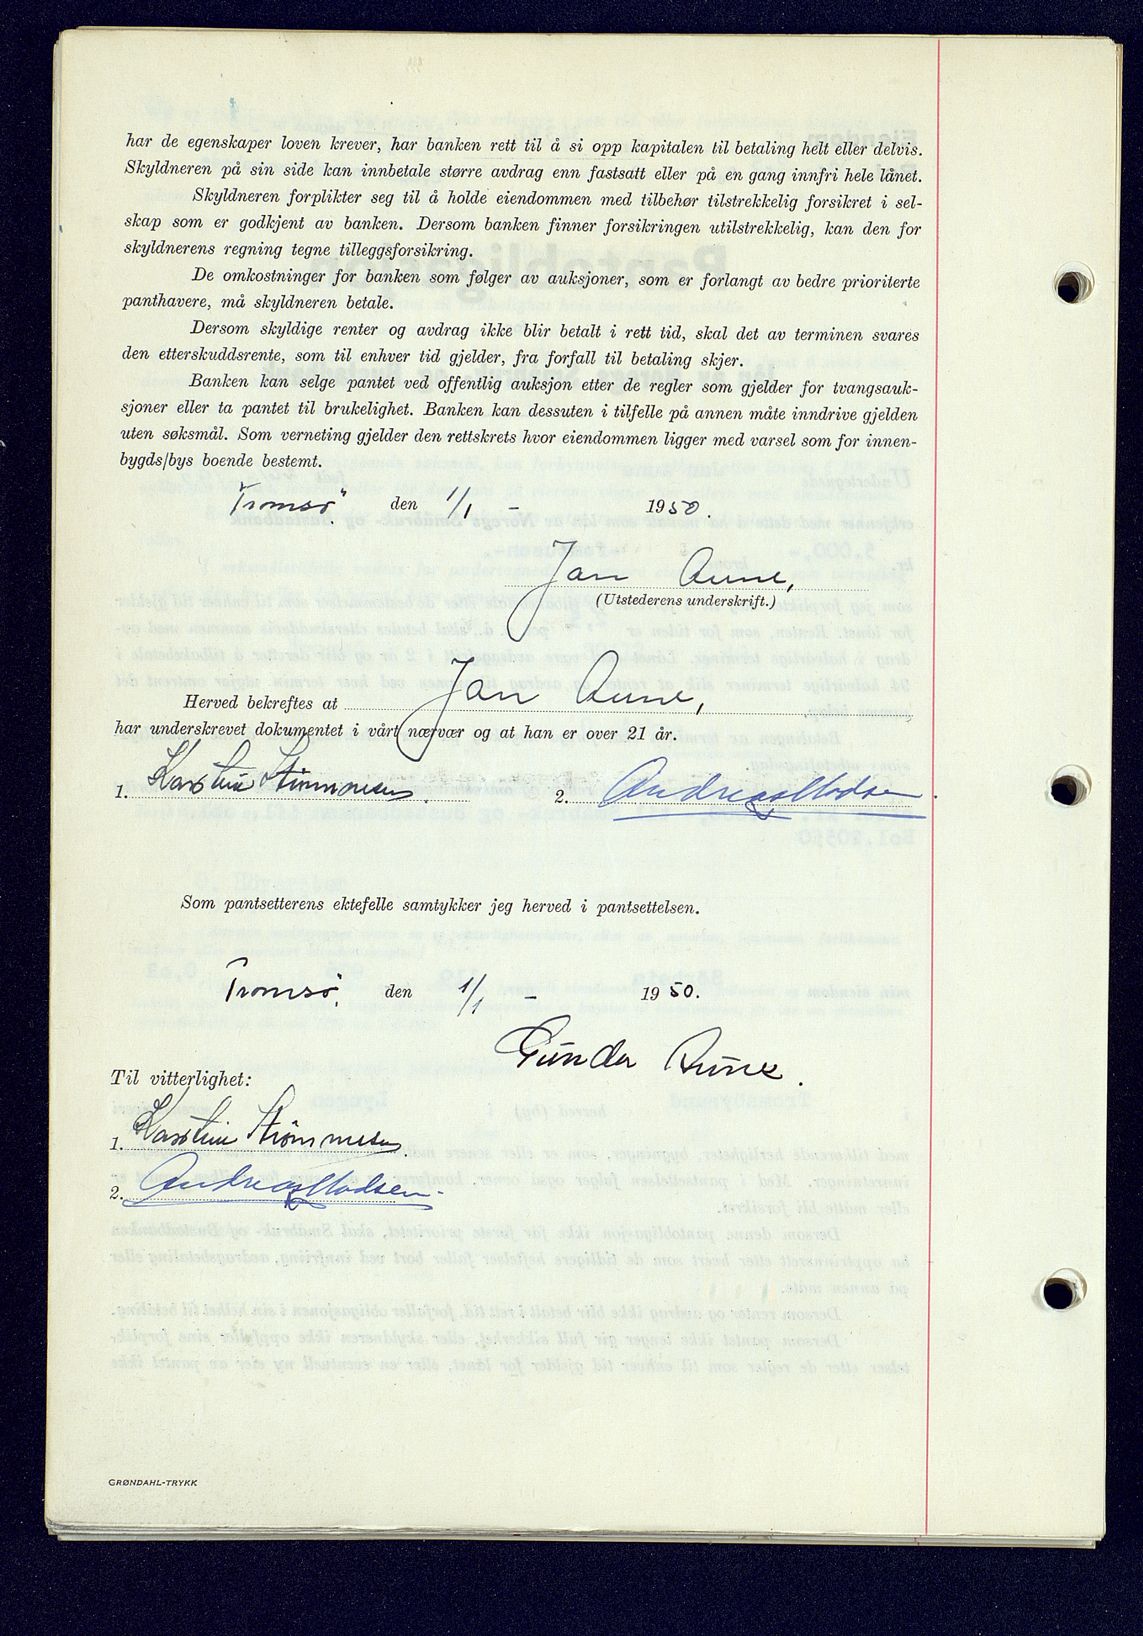 har de egenskaper loven krever, har banken rett til å si opp kapitalen til betaling helt eller delvis.
Skyldneren på sin side kan innbetale større avdrag enn fastsatt eller på en gang innfri hele lånet.
Skyldneren forplikter seg til å holde eiendommen med tilbehør tilstrekkelig forsikret i sel-
skap som er godkjent av banken. Dersom banken finner forsikringen utilstrekkelig, kan den for
skyldnerens regning tegne tilleggsforsikring.
De omkostninger for banken som følger av auksjoner, som er forlangt av bedre prioriterte
panthavere, må skyldneren betale.
Dersom skyldige renter og avdrag ikke blir betalt i rett tid, skal det av terminen svares
den etterskuddsrente, som til enhver tid gjelder, fra forfall til betaling skjer.
Banken kan selge pantet ved offentlig auksjon etter de regler som gjelder for tvangsauk-
sjoner eller ta pantet til brukelighet. Banken kan dessuten i tilfelle på annen måte inndrive gjelden
uten søksmål. Som verneting gjelder den rettskrets hvor eiendommen ligger med varsel som for innen-
bygds/bys boende bestemt.
Tromsø, den 1/1 - 1950.
Jan Aune,
(Utstederens underskrift.)
Herved bekreftes at Jan Aune,
har underskrevet dokumentet i vårt nærvær og at han er over 21 år.
1. Strømmesen. 2. Andreas Madsen.
Som pantsetterens ektefelle samtykker jeg herved i pantsettelsen.
Tromsø, den 1/1 - 1950.
Gunda Aune.
Til vitterlighet:
1. Strømmesen.
2. Andreas Madsen.
GRØNDAHL-TRYKK